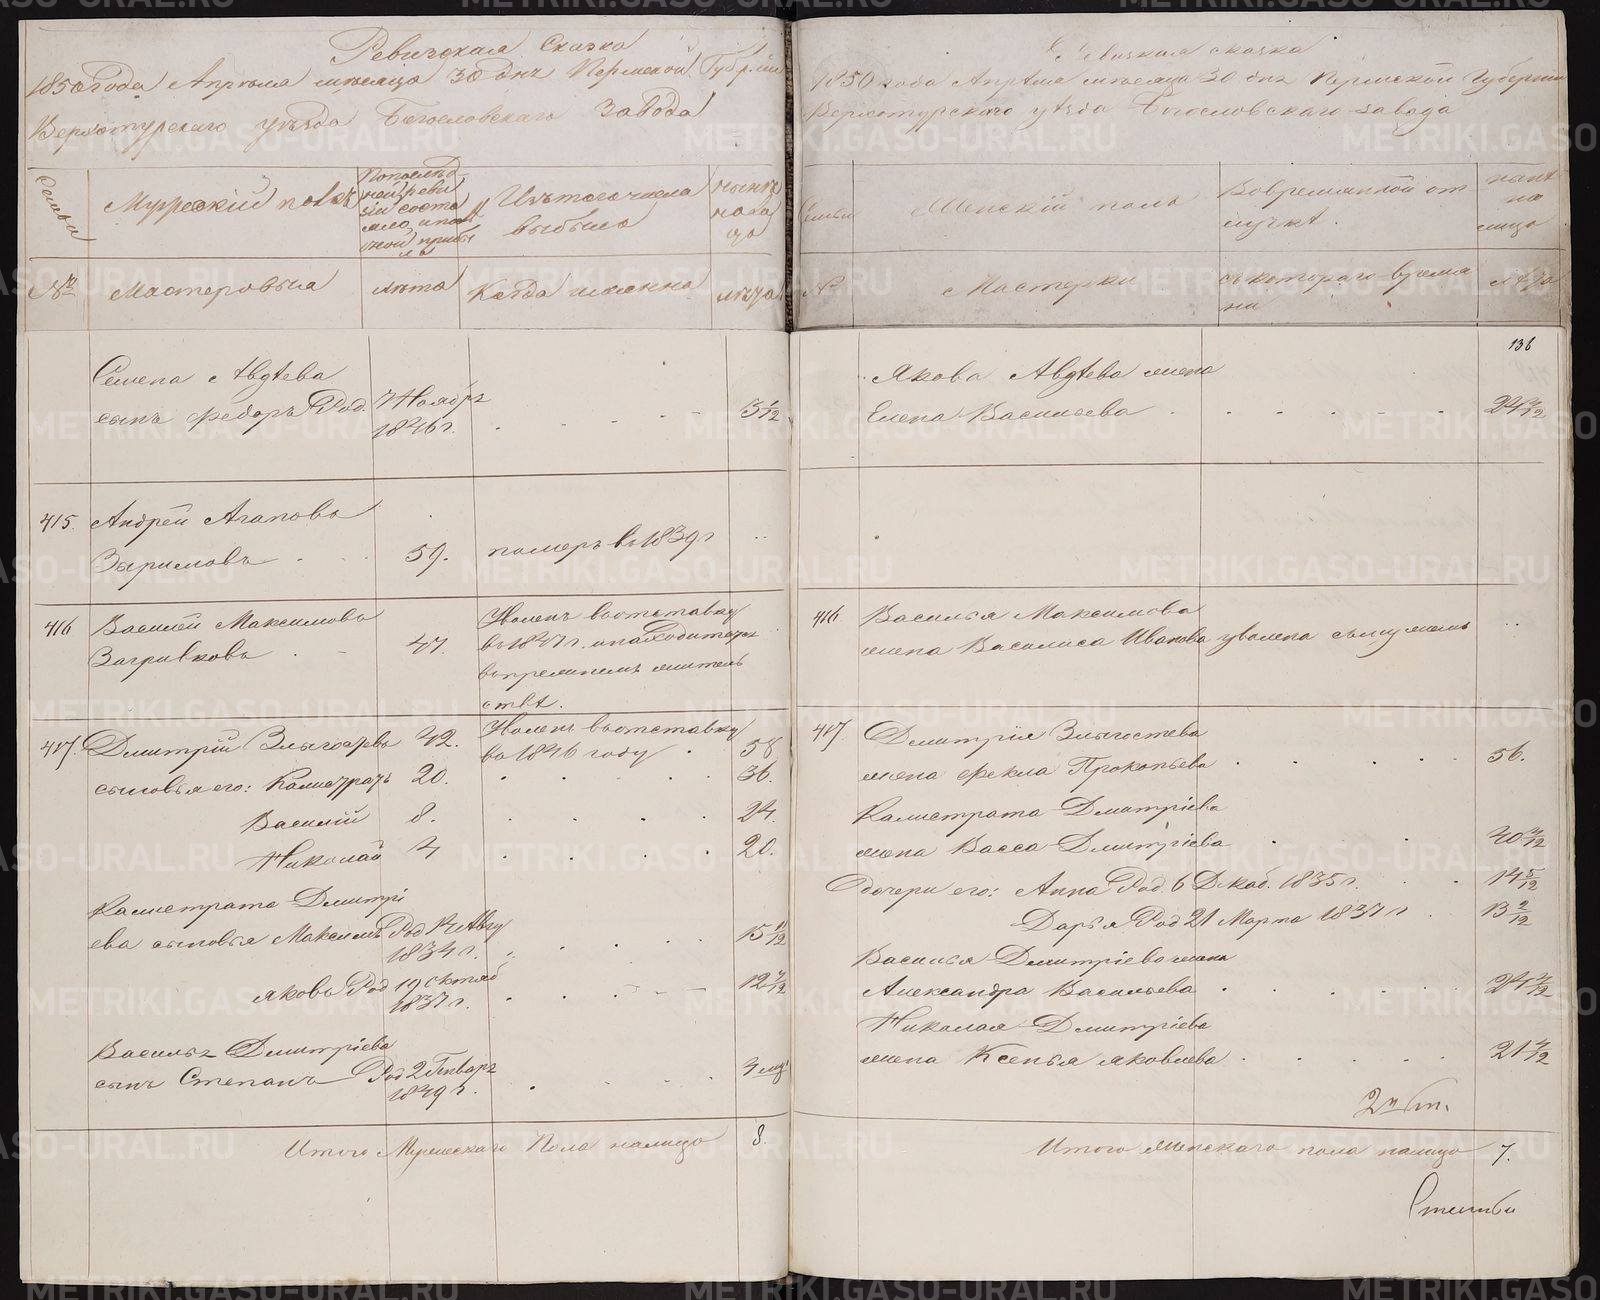 Ревизская Сказка
1850 Года Апреля месяца 30 дня Пермской Губернии
Верхотурскаго уезда Богословскаго завода
Семьи
Мужеский полъ
По последней ревизии состояло и после оной прибыло
Изъ того числа выбыло
ныне на лицо
№
Мастеровыя
лета
Когда именно
лета
Семена Авдеева
сынъ Федоръ Род. 7 Ноября 1846 г. 3 5/12
415. Андрей Агаповъ
59. померъ въ 1839 г
416 Василей Максимовъ
Загривковъ 47. Уволенъ въ отставку
въ 1847 г. и находится
въ прежнемъ жительстве.
417. Дмитрий 42. Уволенъ въ отставку
въ 1846 году 58
сыновья его: Калистратъ 20. 36.
Василий 8. 24.
Николай 4 20.
Калистрата Дмитриева сыновья Максимъ Род 14 Авгу 1834 г. 15
Яковъ Род 19 октяб 1837 г. 12 7/12
Василья Дмитриева
сынъ Степанъ Род 2 Генваря 1849 г. 4 мц
Итого Мужескаго Пола налицо 8.
Ревизкая сказка
1850 года Апреля месяца 30 дня Пермской Губернии
Верхотурскаго уезда Богословскаго завода
Семьи
Женский полъ
Во временной отлучке.
ныне на лицо
№
Мастерки
съ котораго времени
лета
136
Якова Авдеева жена
Елена Васильева 24
416 Василья Максимова
жена Василиса Иванова уволена съ мужемъ
417. Дмитрия
жена Фекла Прокопьева 56.
Калистрата Дмитриева
жена Васса Дмитриева 40
дочери его: Анна Род 6 Декаб. 1835 г. 14 5/12
Дарья Род 21 Марта 1837 г 13 2/12
Василья Дмитриева жена
Александра Васильева 24
Николая Дмитриева
жена Ксенья Яковлева 21
Итого женскаго пола налицо 7.
METRIKI.GASO-URAL.RU